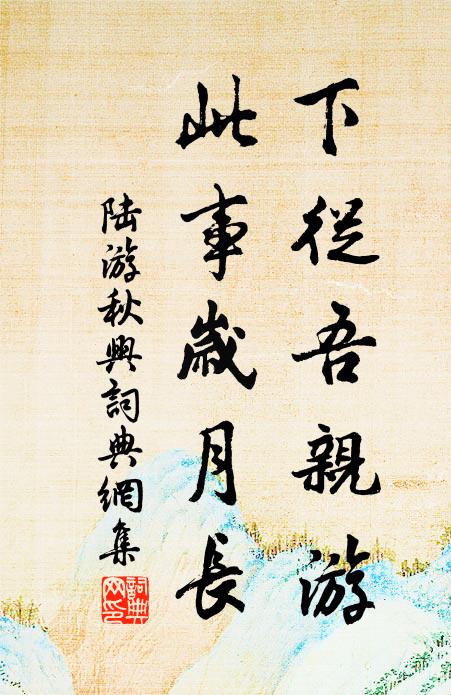 下從吾親游
此事歲月長
陆游秋興詞典網集
詞典网印